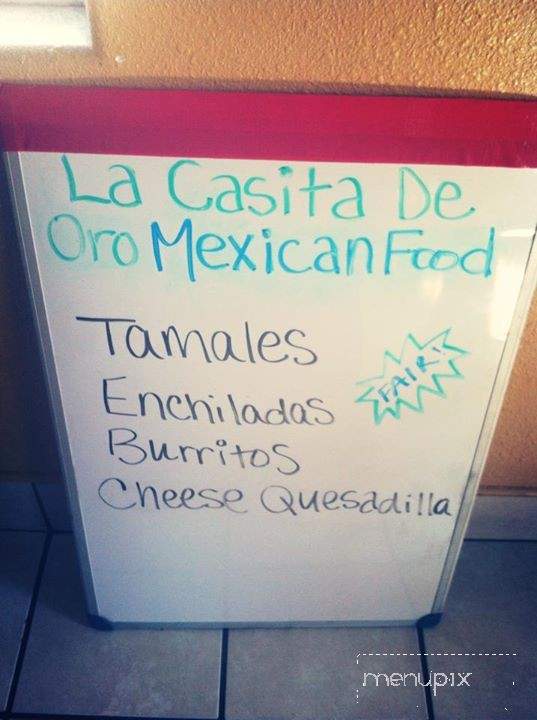 La Casita De
Oro Mexican Food
Tamales
FAIR!
Enchiladas
Burritos
Cheese Quesadilla
menupix